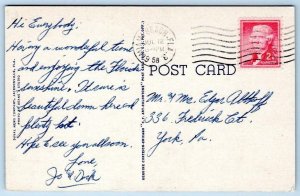 Hi Everybody:
Having a wonderful time
and enjoying the Florida
sunshine. It sure is
beautiful down here and
plenty hot.
Hope to see you all soon.
Love,
Jo & Dick
POST CARD
Mr. & Mrs. Edgar Althoff
336 Frederick Ct.
York, Pa.
58
2¢